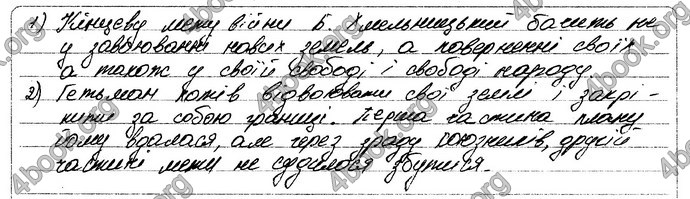 1) Кінцеву мету війни Б. Хмельницький бачить не
у завоюванні нових земель, а поверненні своїх
а також у своїй свободі і свободі народу.
2) Гетьман хотів відвоювати свої землі і закрі-
пити за собою границі. Перша частина плану
йому вдалася, але через зраду союзників, другій
частині мети не судилося збутися.
4book.org